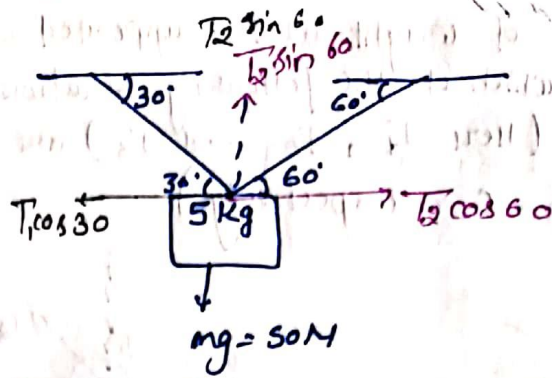 T2 sin 60
T2 sin 60
30°
60°
30°
60°
T1cos30
5 Kg
T2 cos 60
mg = 50N